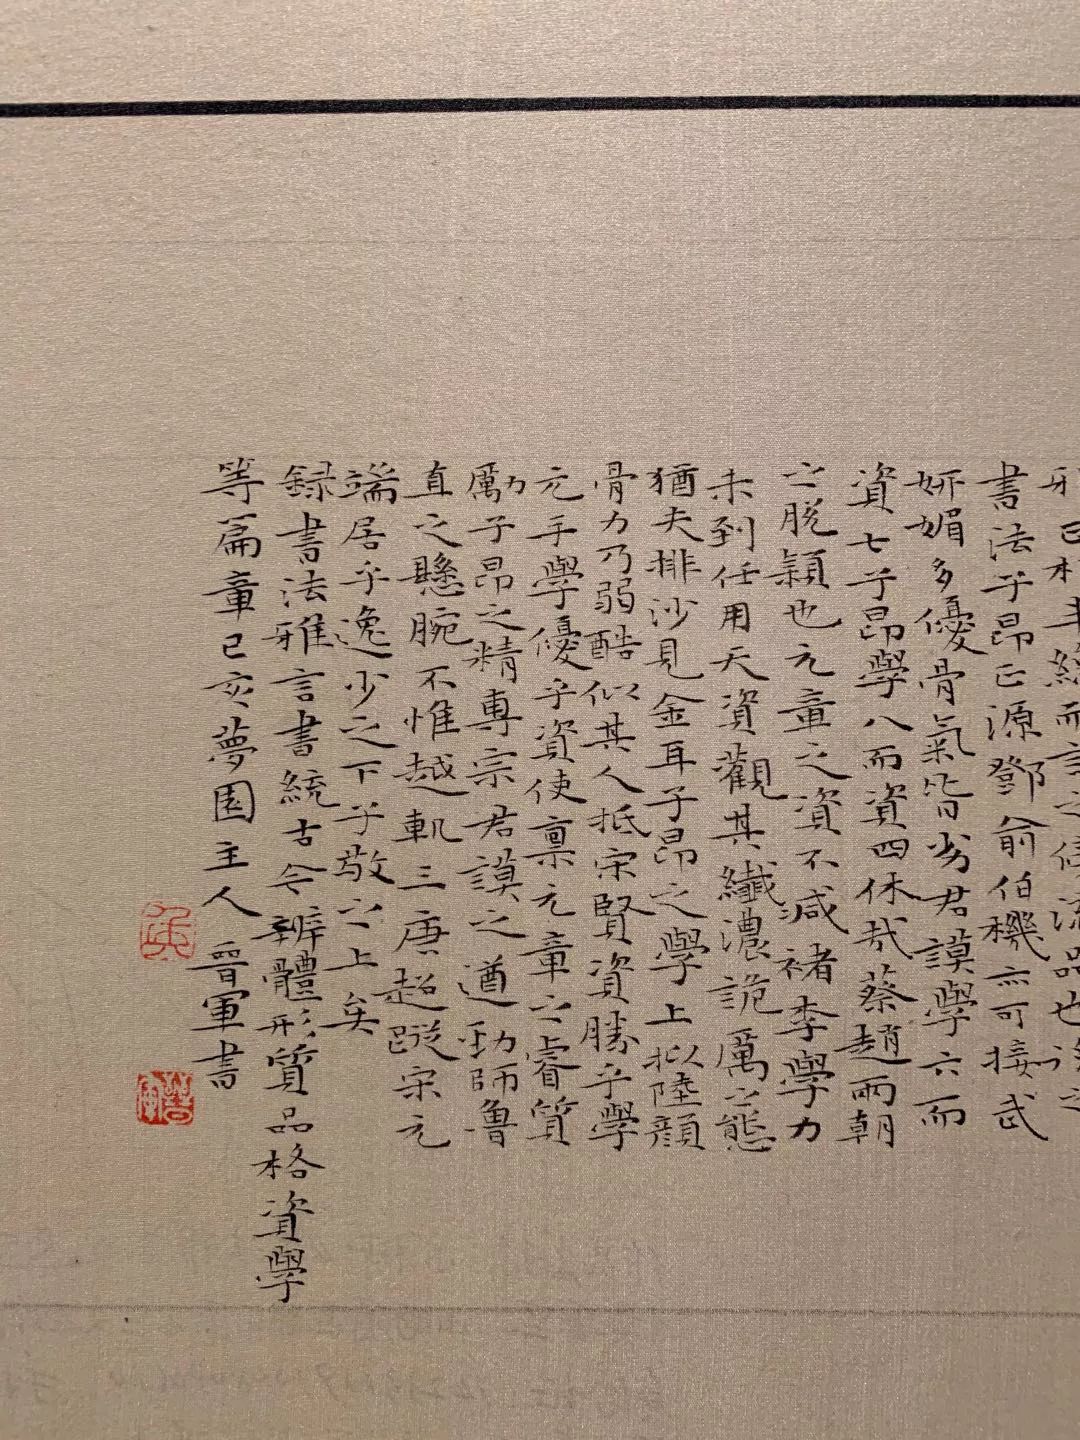 書法子昂正源鄧俞伯機亦可接武
妍媚多優骨氣皆劣君謨學六而
資七子昂學八而資四休哉蔡趙兩朝
之脫穎也元章之資不減褚李學力
未到任用天資觀其纖濃詭厲之態
猶夫排沙見金耳子昂之學上擬陸顔
骨力乃弱酷似其人抵宋賢資勝乎學
元手學優乎資使禀元章之睿質
勵子昂之精專宗君謨之遒勁師魯
直之懸腕不惟越軌三唐超蹤宋元
端居乎逸少之下子敬之上矣
録書法雅言書統古今辨體形質品格資學
等篇章己亥夢園主人晋軍書